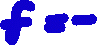 f = -